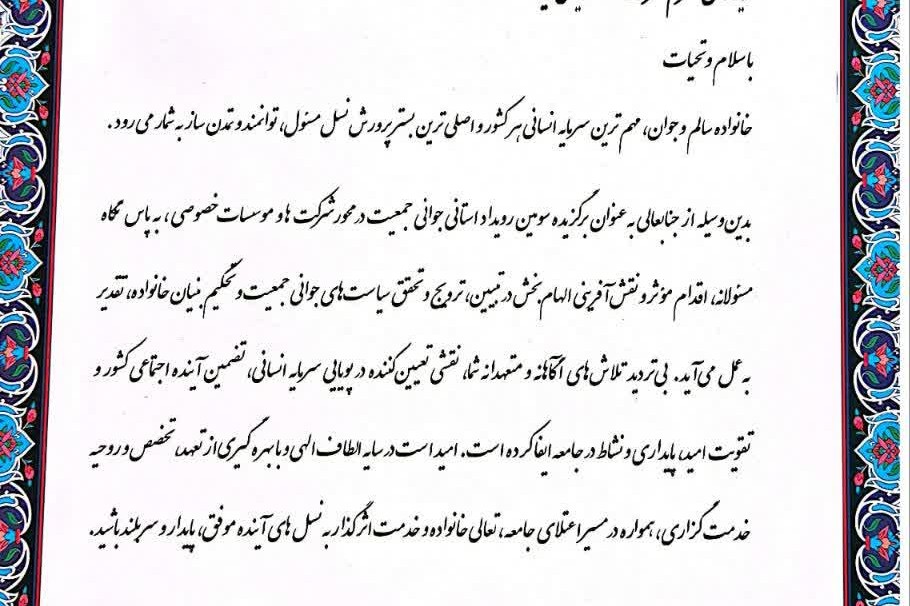 باسلام و تحیات
خانواده سالم و جوان، مهم ترین سرمایه انسانی هر کشور و اصلی ترین بستر پرورش نسل مسئول، توانمند و تمدن ساز به شمار می رود.
بدین وسیله از جنابعالی به عنوان برگزیده سومین رویداد استانی جوانی جمعیت در محور شرکت ها و موسسات خصوصی، به پاس نگاه
مسئولانه، اقدام مؤثر و نقش آفرینی الهام بخش در تبیین، ترویج و تحقق سیاست های جوانی جمعیت و تحکیم بنیان خانواده، تقدیر
به عمل می آید. بی تردید تلاش های آگاهانه و متعهدانه شما، نقشی تعیین کننده در پویایی سرمایه انسانی، تضمین آینده اجتماعی کشور و
تقویت امید، پایداری و نشاط در جامعه ایفا کرده است. امید است در سایه الطاف الهی و با بهره گیری از تعهد، تخصص و روحیه
خدمت گزاری، همواره در مسیر اعتلای جامعه، تعالی خانواده و خدمت اثرگذار به نسل های آینده موفق، پایدار و سربلند باشید.